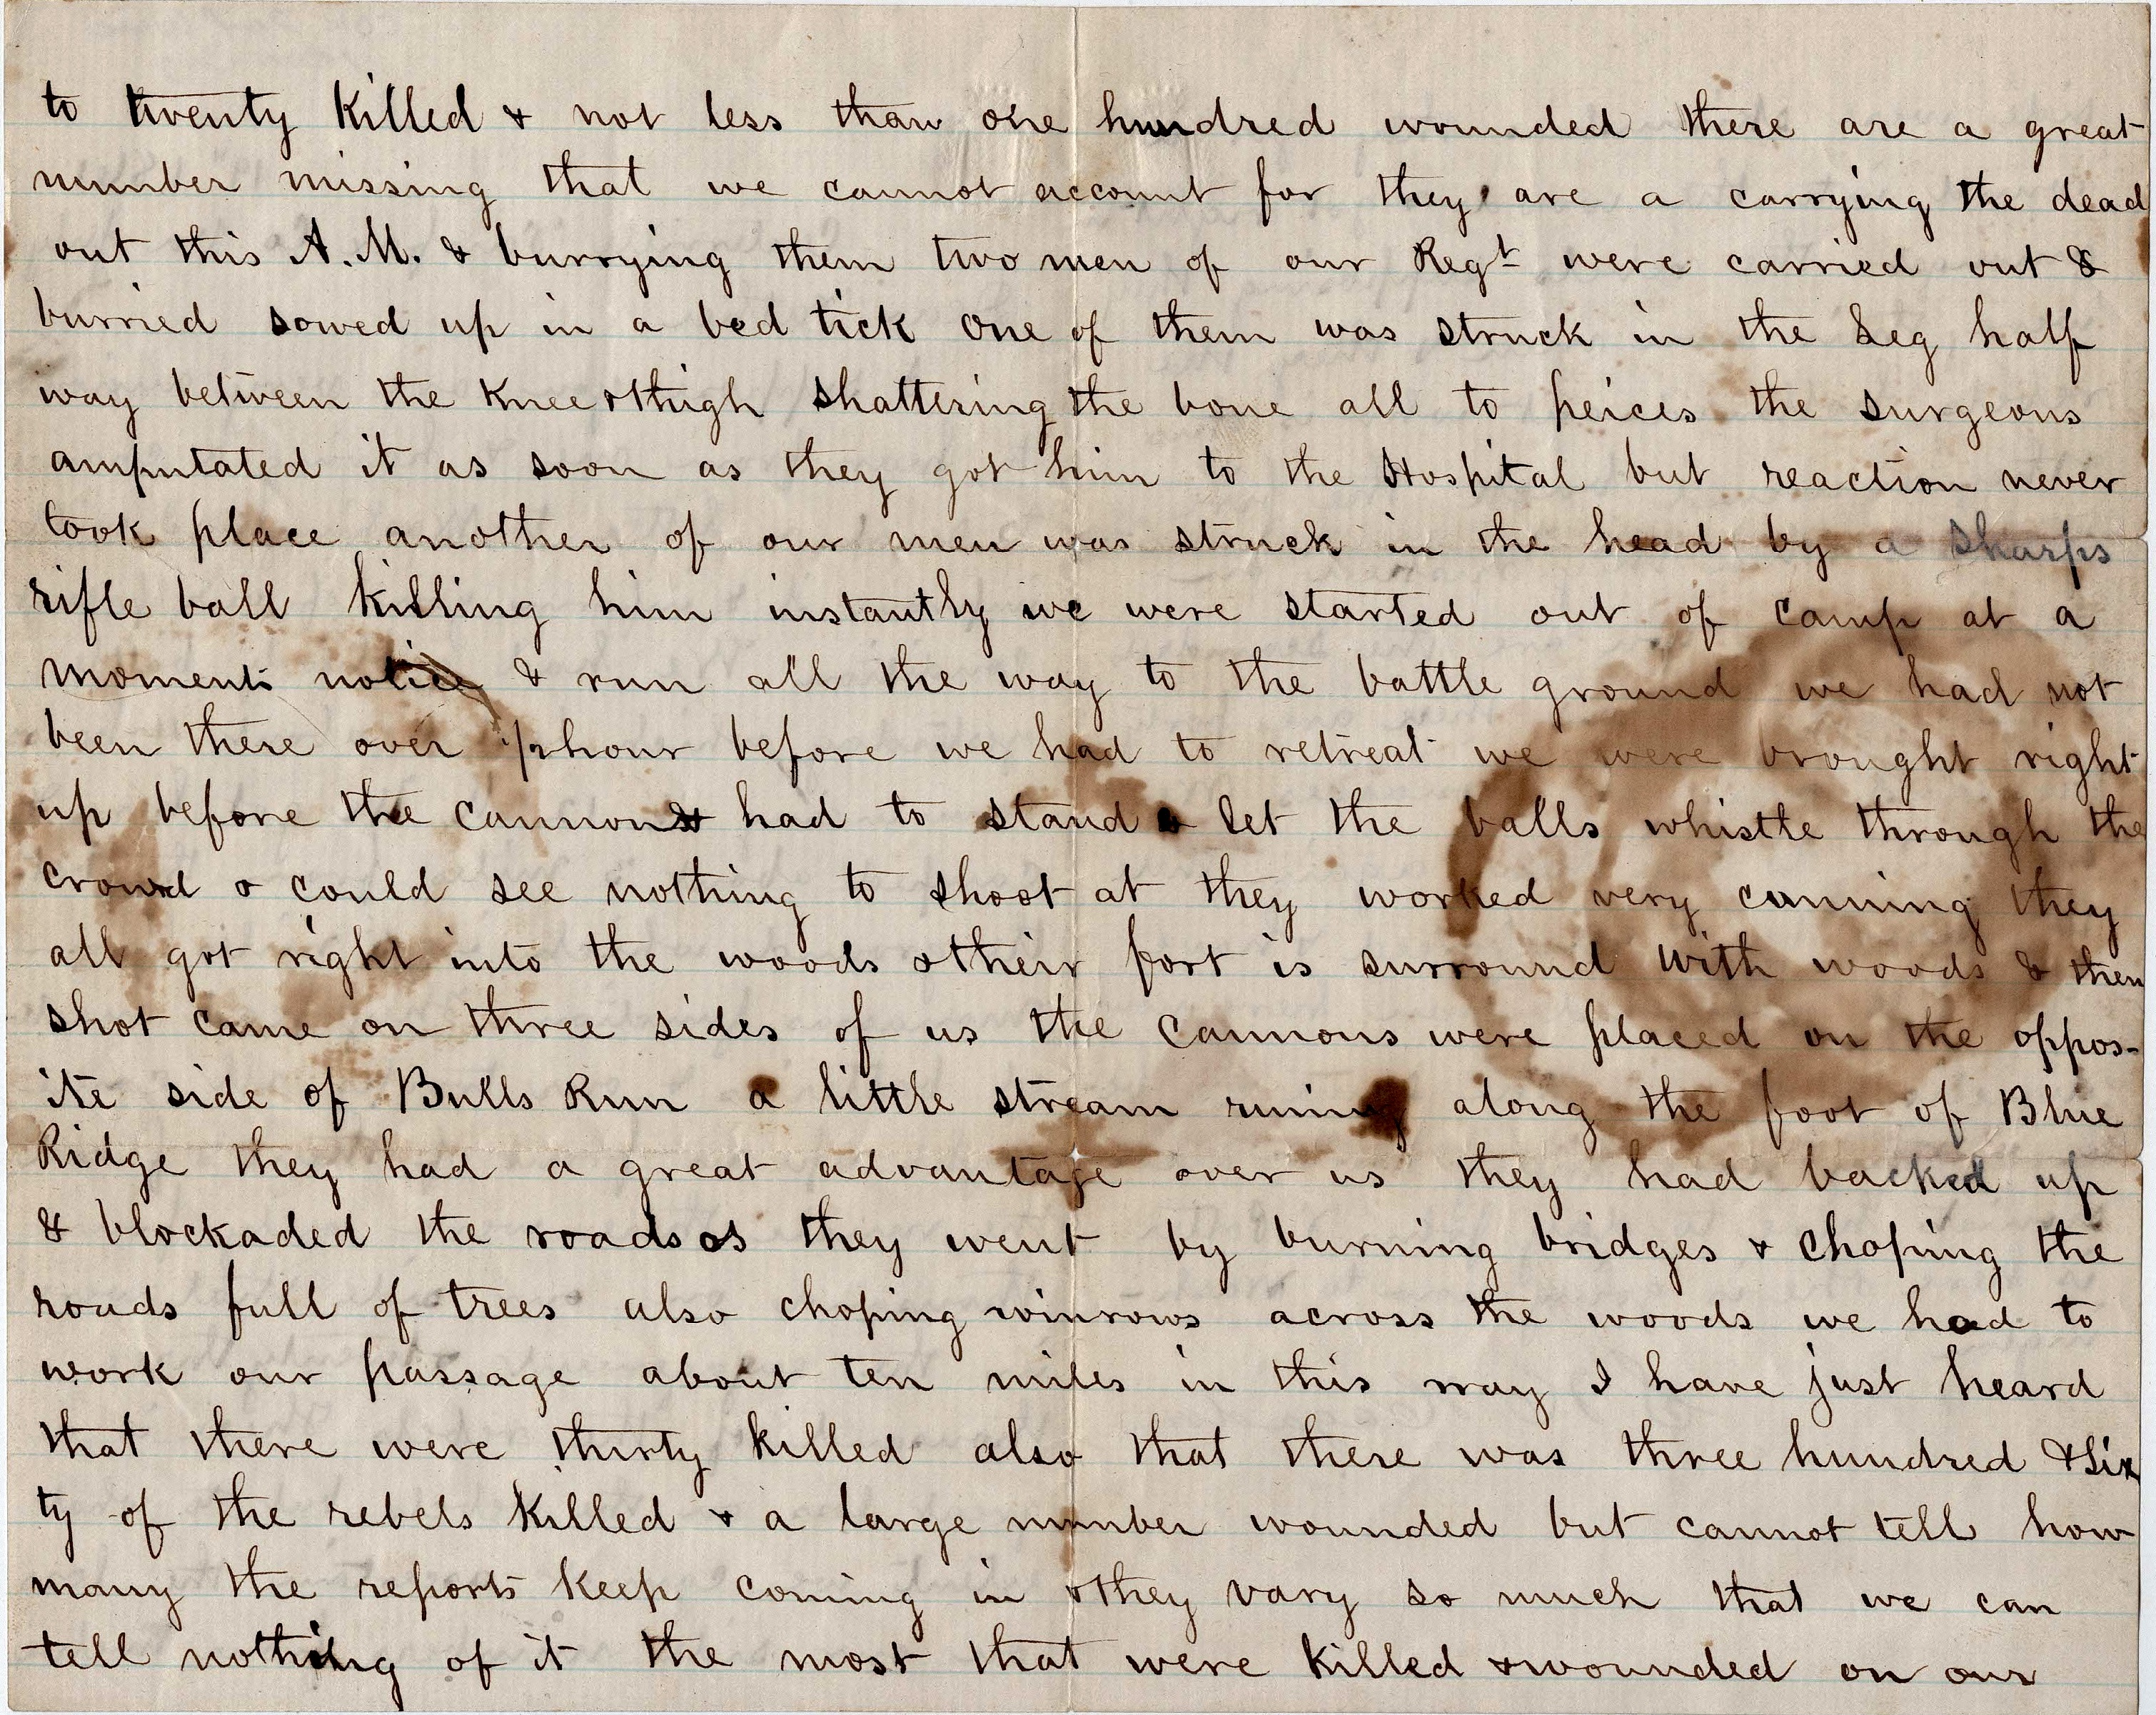 to twenty killed & not less than one hundred wounded there are a great
number missing that we cannot account for they are a carrying the dead
out this A.M. & burrying them two men of our Regt were carried out &
burried sowed up in a bed tick one of them was struck in the Leg half
way between the knee & thigh shattering the bone all to peices the surgeons
amputated it as soon as they got him to the Hospital but reaction never
took place another of our men was struck in the head by a sharps
rifle ball killing him instantly we were started out of camp at a
moments notice & run all the way to the battle ground we had not
been there over 1/2 hour before we had to retreat we were brought right
up before the cannons & had to stand & let the balls whistle through the
crowd & could see nothing to shoot at they worked very cunning they
all got right into the woods & their fort is surround with woods & then
shot came on three sides of us the cannons were placed on the oppos-
ite side of Bulls Run a little stream runing along the foot of Blue
Ridge they had a great advantage over us they had backed up
& blockaded the roads as they went by burning bridges & choping the
roads full of trees also choping winrows across the woods we had to
work our passage about ten miles in this way I have just heard
that there were thirty killed also that there was three hundred & Six
ty of the rebels killed & a large number wounded but cannot tell how
many the reports keep coming in & they vary so much that we can
tell nothing of it the most that were killed & wounded on our